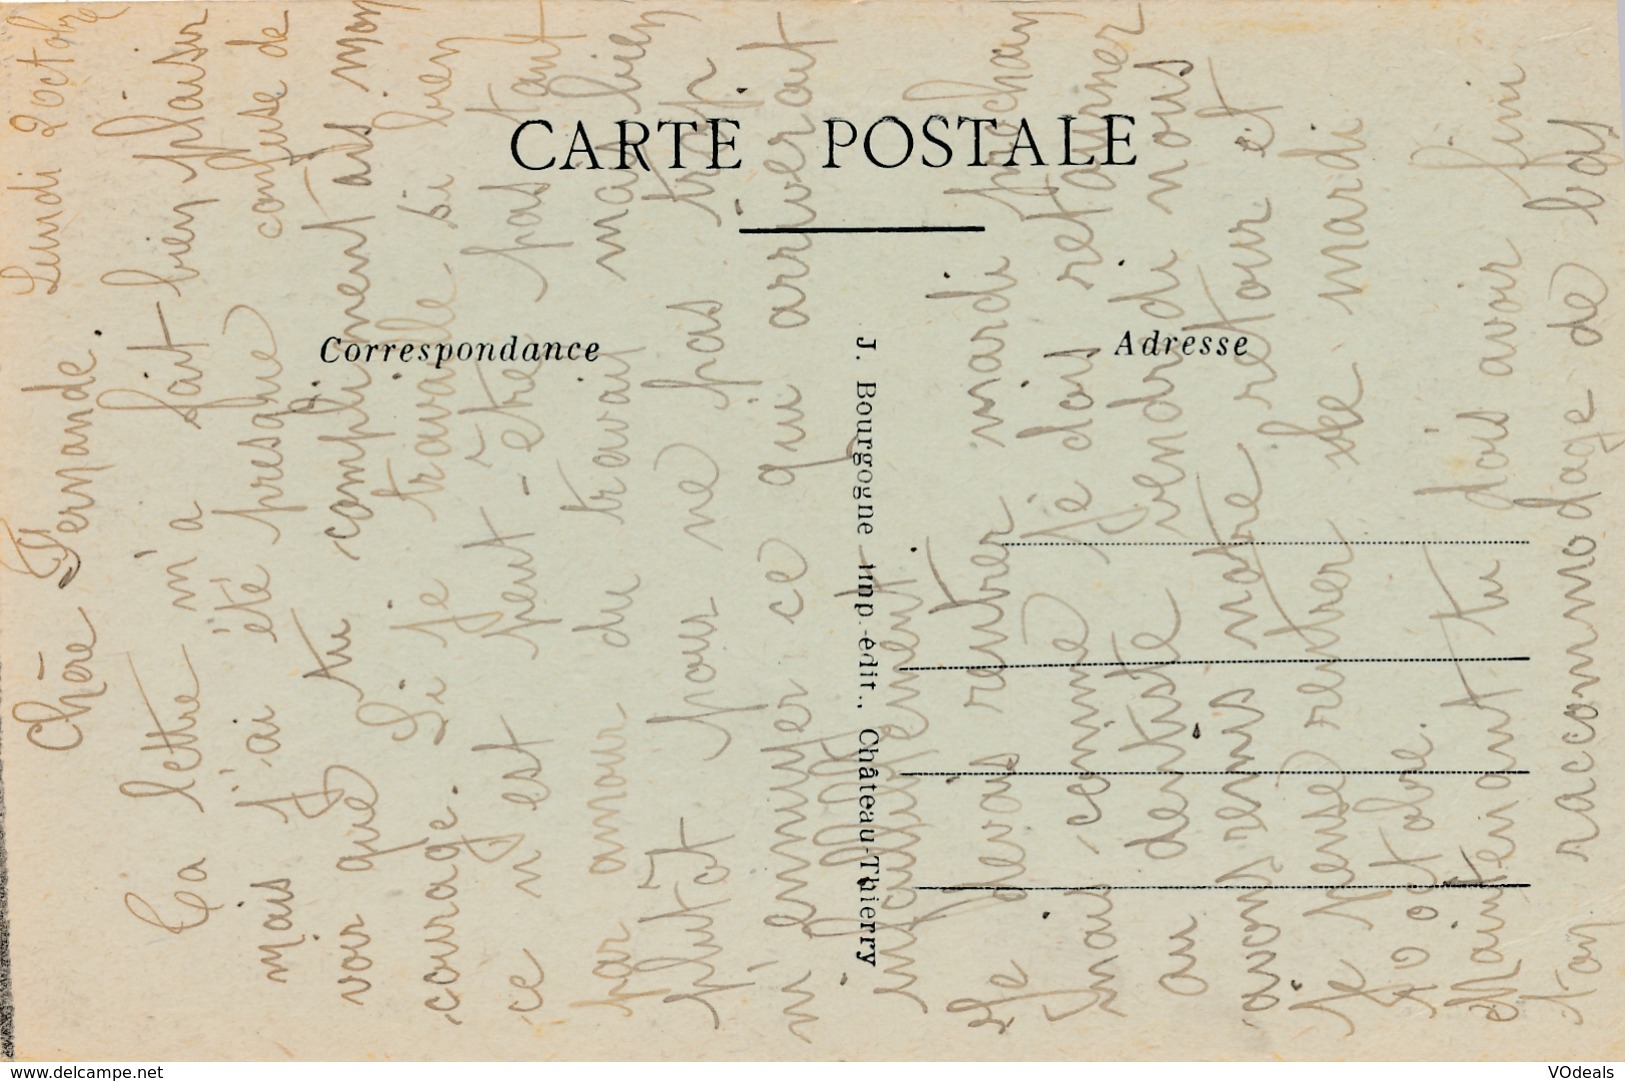 CARTE POSTALE
Correspondance
Adresse
J. Bourgogne Imp.-édit., Château-Thierry
Lundi 2 octobre
Chère Fernande.
Ta lettre m'a fait bien plaisir
mais j'ai été presque confuse de
voir que tu complimentais mon
courage. Si je travaille si bien
ce n'est peut-être pas tant
par amour du travail mais bien
plutôt pour ne pas trop
m'ennuyer ce qui arriverait

Je devais rentrer mardi prochain
mais comme je dois retourner
au dentiste vendredi nous
avons remis notre retour et
je pense rentrer le mardi
10 octobre.
Maintenant tu dois avoir fini
ton raccommodage de bas
www.delcampe.net
VOdeals